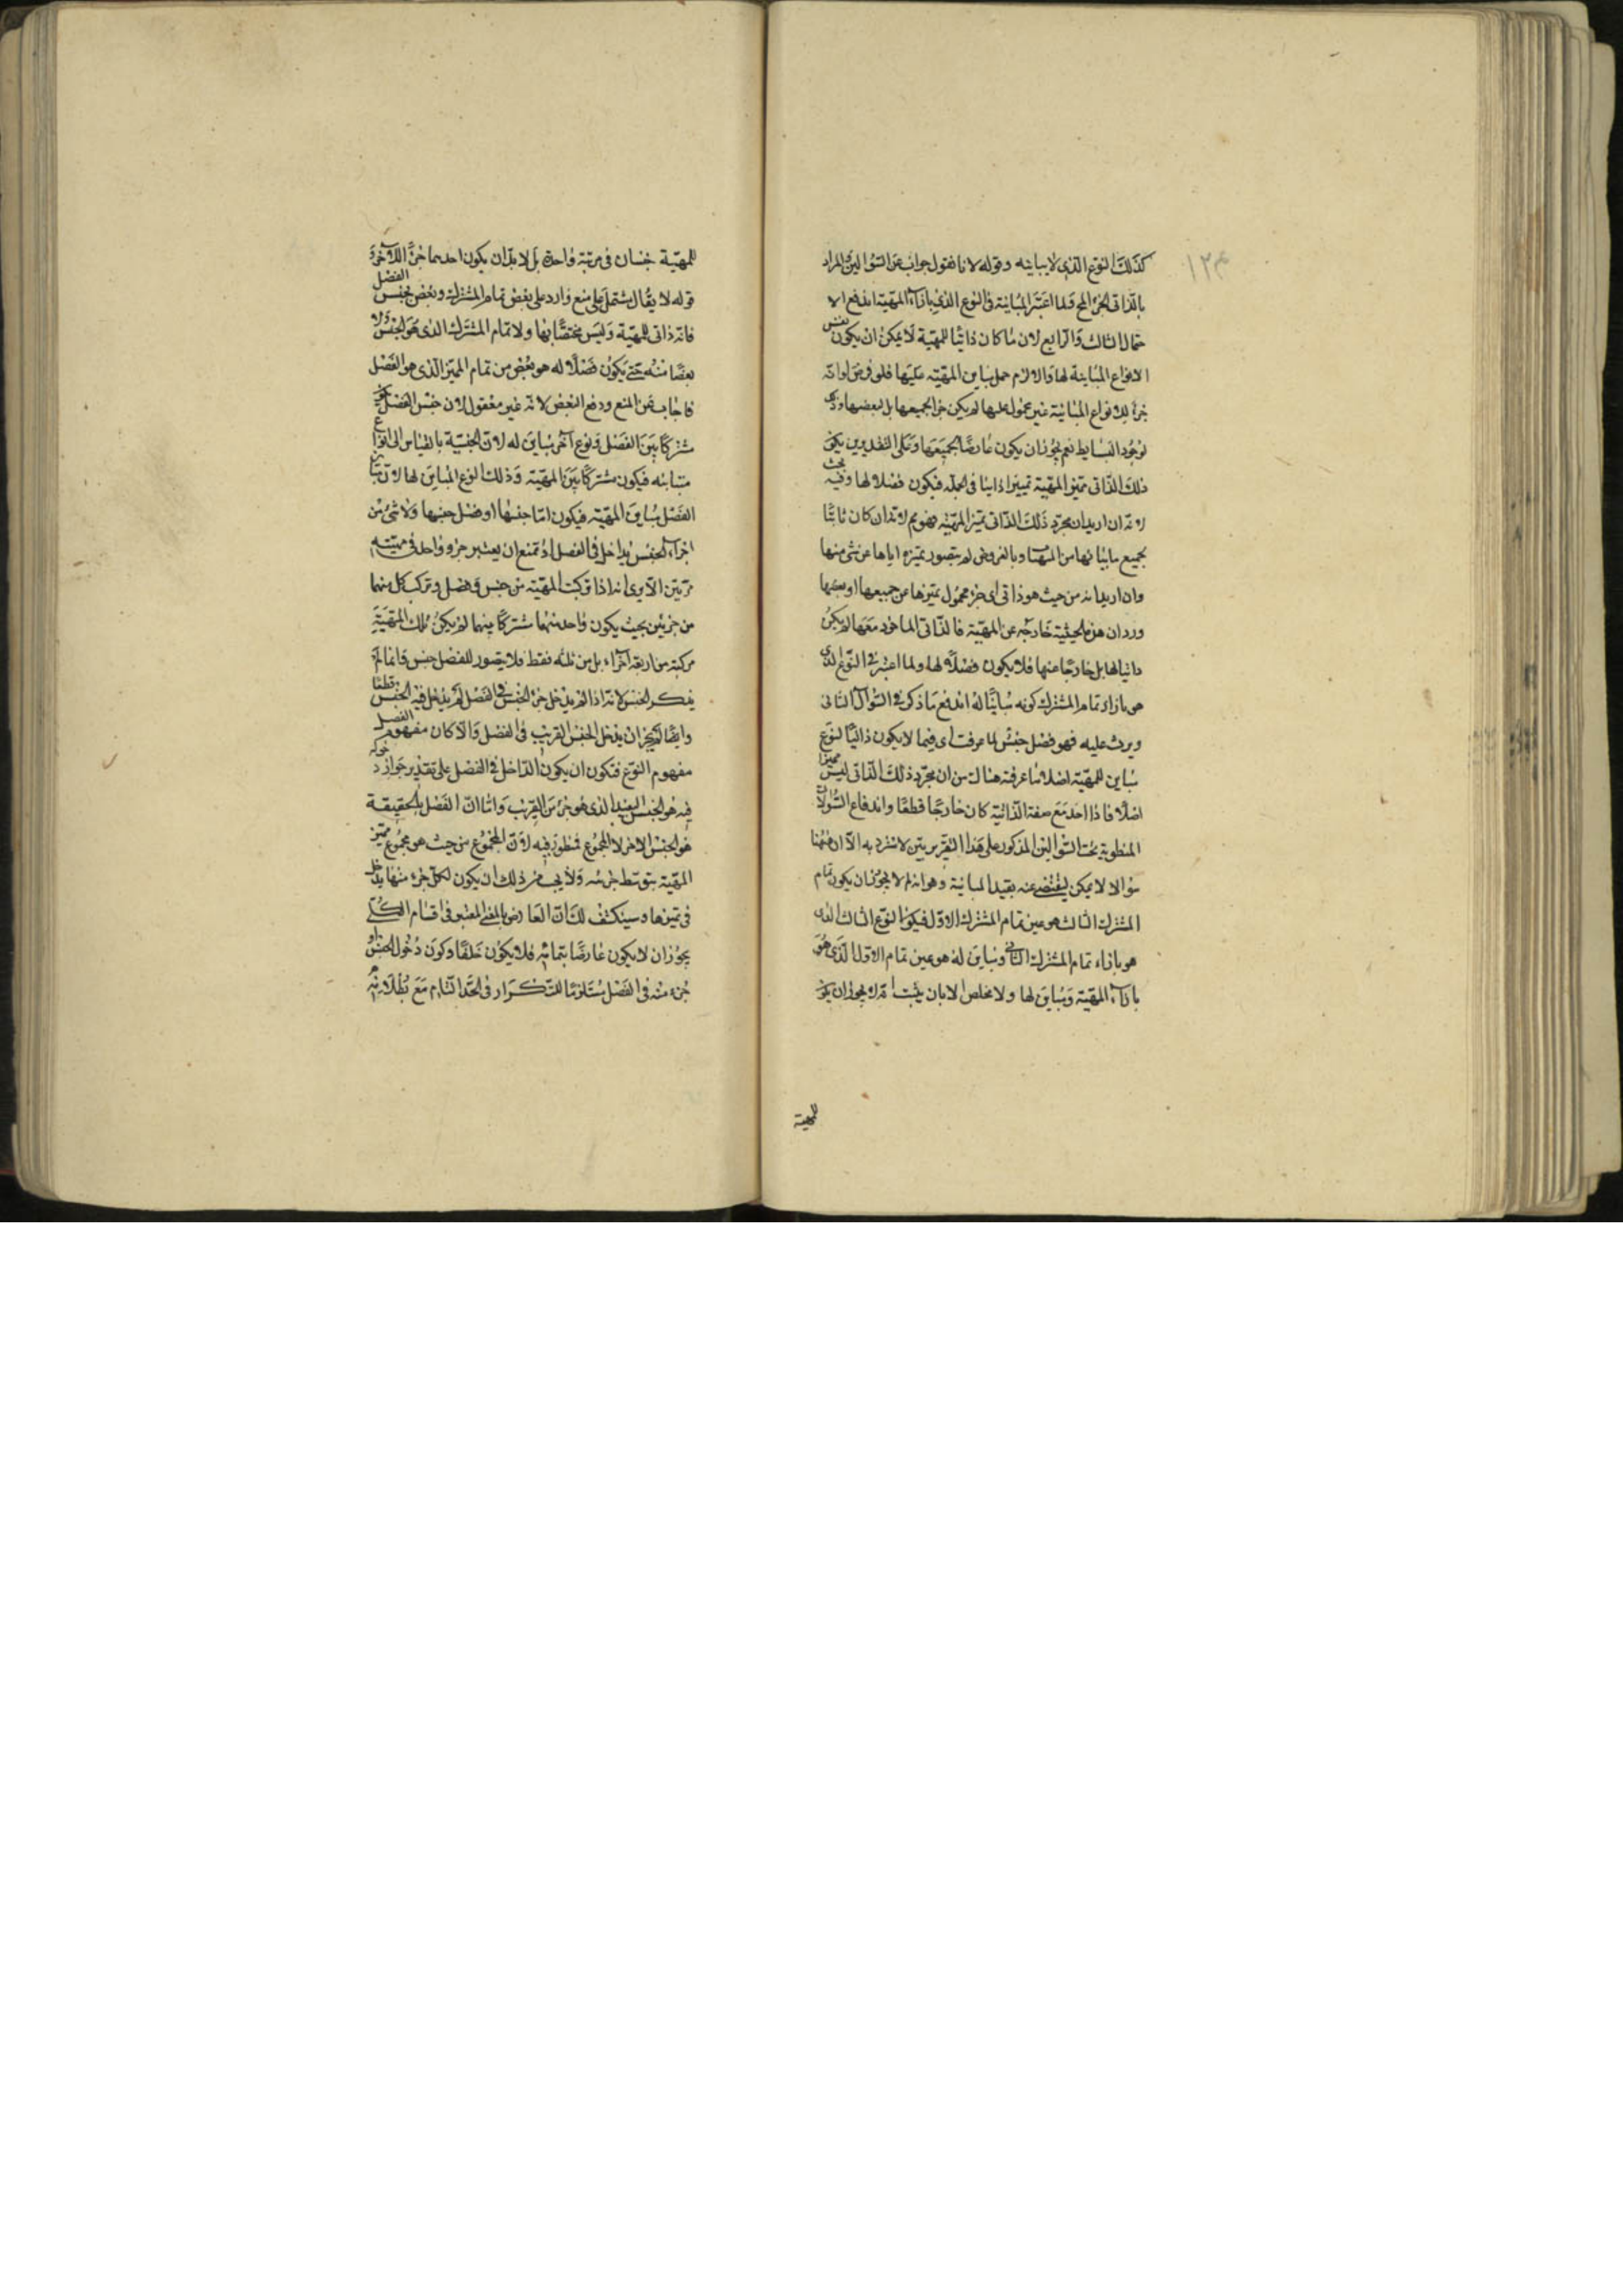 ١٢٣
كذلك النوع الذى لا يباينه وقوله لانا نقول جواب عن السؤالين والمراد
بالذاتى الجزء المحمول ولما اعتبر المباينة فى النوع الذى بازاء المهية اندفع الا
حتمال الثالث والرابع لان ما كان ذاتيا للمهية لا يمكن ان يكون نفس
الانواع المباينة لها والا لزم حمل مباين المهية عليها فلو فرض اما انه
جزء للانواع المباينة غير محمول عليها لم يكن جزأ لجميعها بل لبعضها
لوجود البسايط نعم يجوز ان يكون عارضا لجميعها وعلى التقديرين يكون
ذلك الذاتى مميز المهية تمييزا ذاتيا فى الجملة فيكون فصلا لها وفيه بحث
لانه ان اريد ان مجرد ذلك الذاتى مميز المهية فهو مم لانه ان كان ثابتا
لجميع مبايناتها من المهيات وبالفروض لم يتصور تميزه اياها عن شئ منها
وان اريد انه من حيث هو ذاتى اى جزء محمول تميزها عن جميعها او بعضها
ورد ان هذه الحيثية خارجة عن المهية فالذاتى الماخوذ معها لم يكن
ذاتيا لها بل خارجا عنها فلا يكون فصلا لها ولما اعتبر فى النوع الذى
هو بازاء تمام المشترك كونه مباينا له اندفع ما ذكر فى السؤال الثانى
ويرد عليه فهو فصل جنس لما عرفت اى فيما لا يكون ذاتيا لنوع
مباين للمهية اصلا ما عرفته هناك من ان مجرد ذلك الذاتى ليس مميزا
اصلا فاذا اخذ مع صفة الذاتية كان خارجا قطعا واندفاع السؤالات
المنطوية تحت السؤالين المذكور على هذا التقرير بين لا سترة به الا ان ههنا
سؤالا لا يمكن التفصى عنه بقيد المباينة وهو انه لم لا يجوز ان يكون تمام
المشترك الثالث هو عين تمام المشترك الاول فيكون النوع الثالث الذى
هو بازاء تمام المشترك الثانى ومباين له هو عين تمام الاول الذى هو
بازاء المهية ومباين لها ولا مخلص الا بان يثبت انه لا يجوز ان يكون
للمهية
للمهية جنسان فى مرتبة واحدة بل لا بد ان يكون احدهما جزأ للاخر
قوله لا يقال يشتمل على منع وارد على بعض تمام المشترك وبعض جنس الفصل
فانه ذاتى للمهية وليس مختصا بها ولا تمام المشترك الذى هو الجنس ولا
بعضا منه حتى يكون فصلا له هو بعض من تمام المميز الذى هو الفصل
فاجاب عن المنع ودفع النقض لانه غير معقول لان جنس الفصل يكون
مشتركا بين الفصل ونوع آخر مباين له لان الجنسية بالقياس الى انواع
متباينة فيكون مشتركا بين المهية وذلك النوع المباين لها لان مباين
الفصل مباين المهية فيكون اما جنسها او فصل جنسها ولا شئ من
اجزاء الجنس بداخل فى الفصل اذ يمتنع ان يعتبر جزء واحد فى مهية
مرتين الا يرى انه اذا تركبت المهية من جنس وفصل وتركب كل منهما
من جزئين بحيث يكون واحد منهما مشتركا بينهما لم يكن تلك المهية
مركبة من اربعة اجزاء بل من ثلثة فقط فلا يتصور للفصل جنس وانما لم
يذكر الجنس لانه اذا لم يدخل جزء الجنس فى الفصل لم يدخل فيه الجنس قطعا
وايضا لم يجز ان يدخل الجنس القريب فى الفصل والا كان مفهوم الفصل
مفهوم النوع فيكون ان يكون الداخل فى الفصل على تقدير جواز دخوله
فيه هو الجنس البعيد الذى هو جزء من القريب واما ان الفصل بالحقيقة
هو الجزء الاخر لا المجموع فمنظور فيه لان المجموع من حيث هو مجموع مميز
المهية بتوسط جزئه ولا يجب من ذلك ان يكون لكل جزء منها مدخل
فى تميزها وسينكشف لك ان العارض بالمعنى المعتبر فى اقسام الكلى
يجوز ان لا يكون عارضا بتمامه فلا يكون خلفا وكون دخول الجنس او
جزء منه فى الفصل مستلزما للتكرار فى الحد التام مع بطلانه